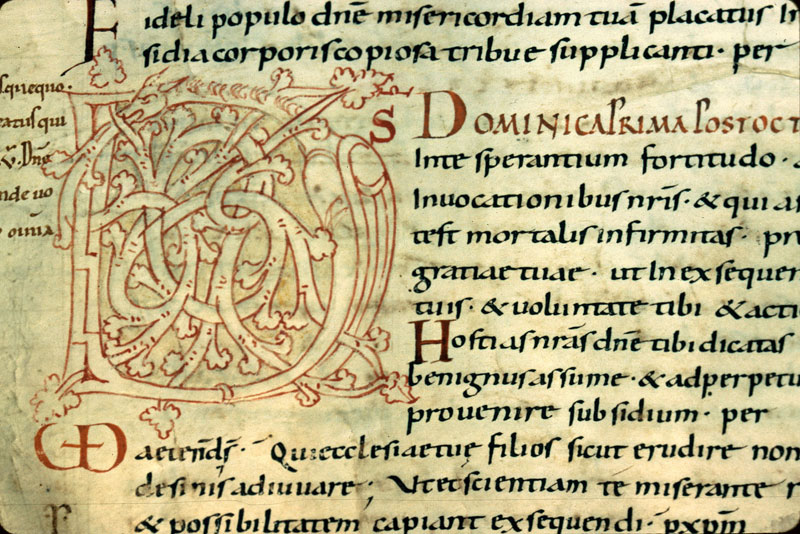 Fideli populo dñe misericordiam tuā placatus in
sidia corporis copiosa tribue supplicanti· per
DOMINICA PRIMA POST OCT
DS Inte sperantium fortitudo·
Inuocationibus nr̄is· & qui a
test mortalis infirmitas· pr
gratiae tuae· ut In exsequen
tuis· & uoluntate tibi & acti
Hostias nr̄as dñe tibi dicatas
benignus assume· & ad perpetu
prouenire subsidium· per
aeternæ
Qui ecclesiae tue filios sicut erudire non
desinis adiuuare; Ut et scientiam te miserante
& possibilitatem capiant exsequendi· p xpm̄
squequo
ratus qui
V. Dn̄e
nde uo
omīa